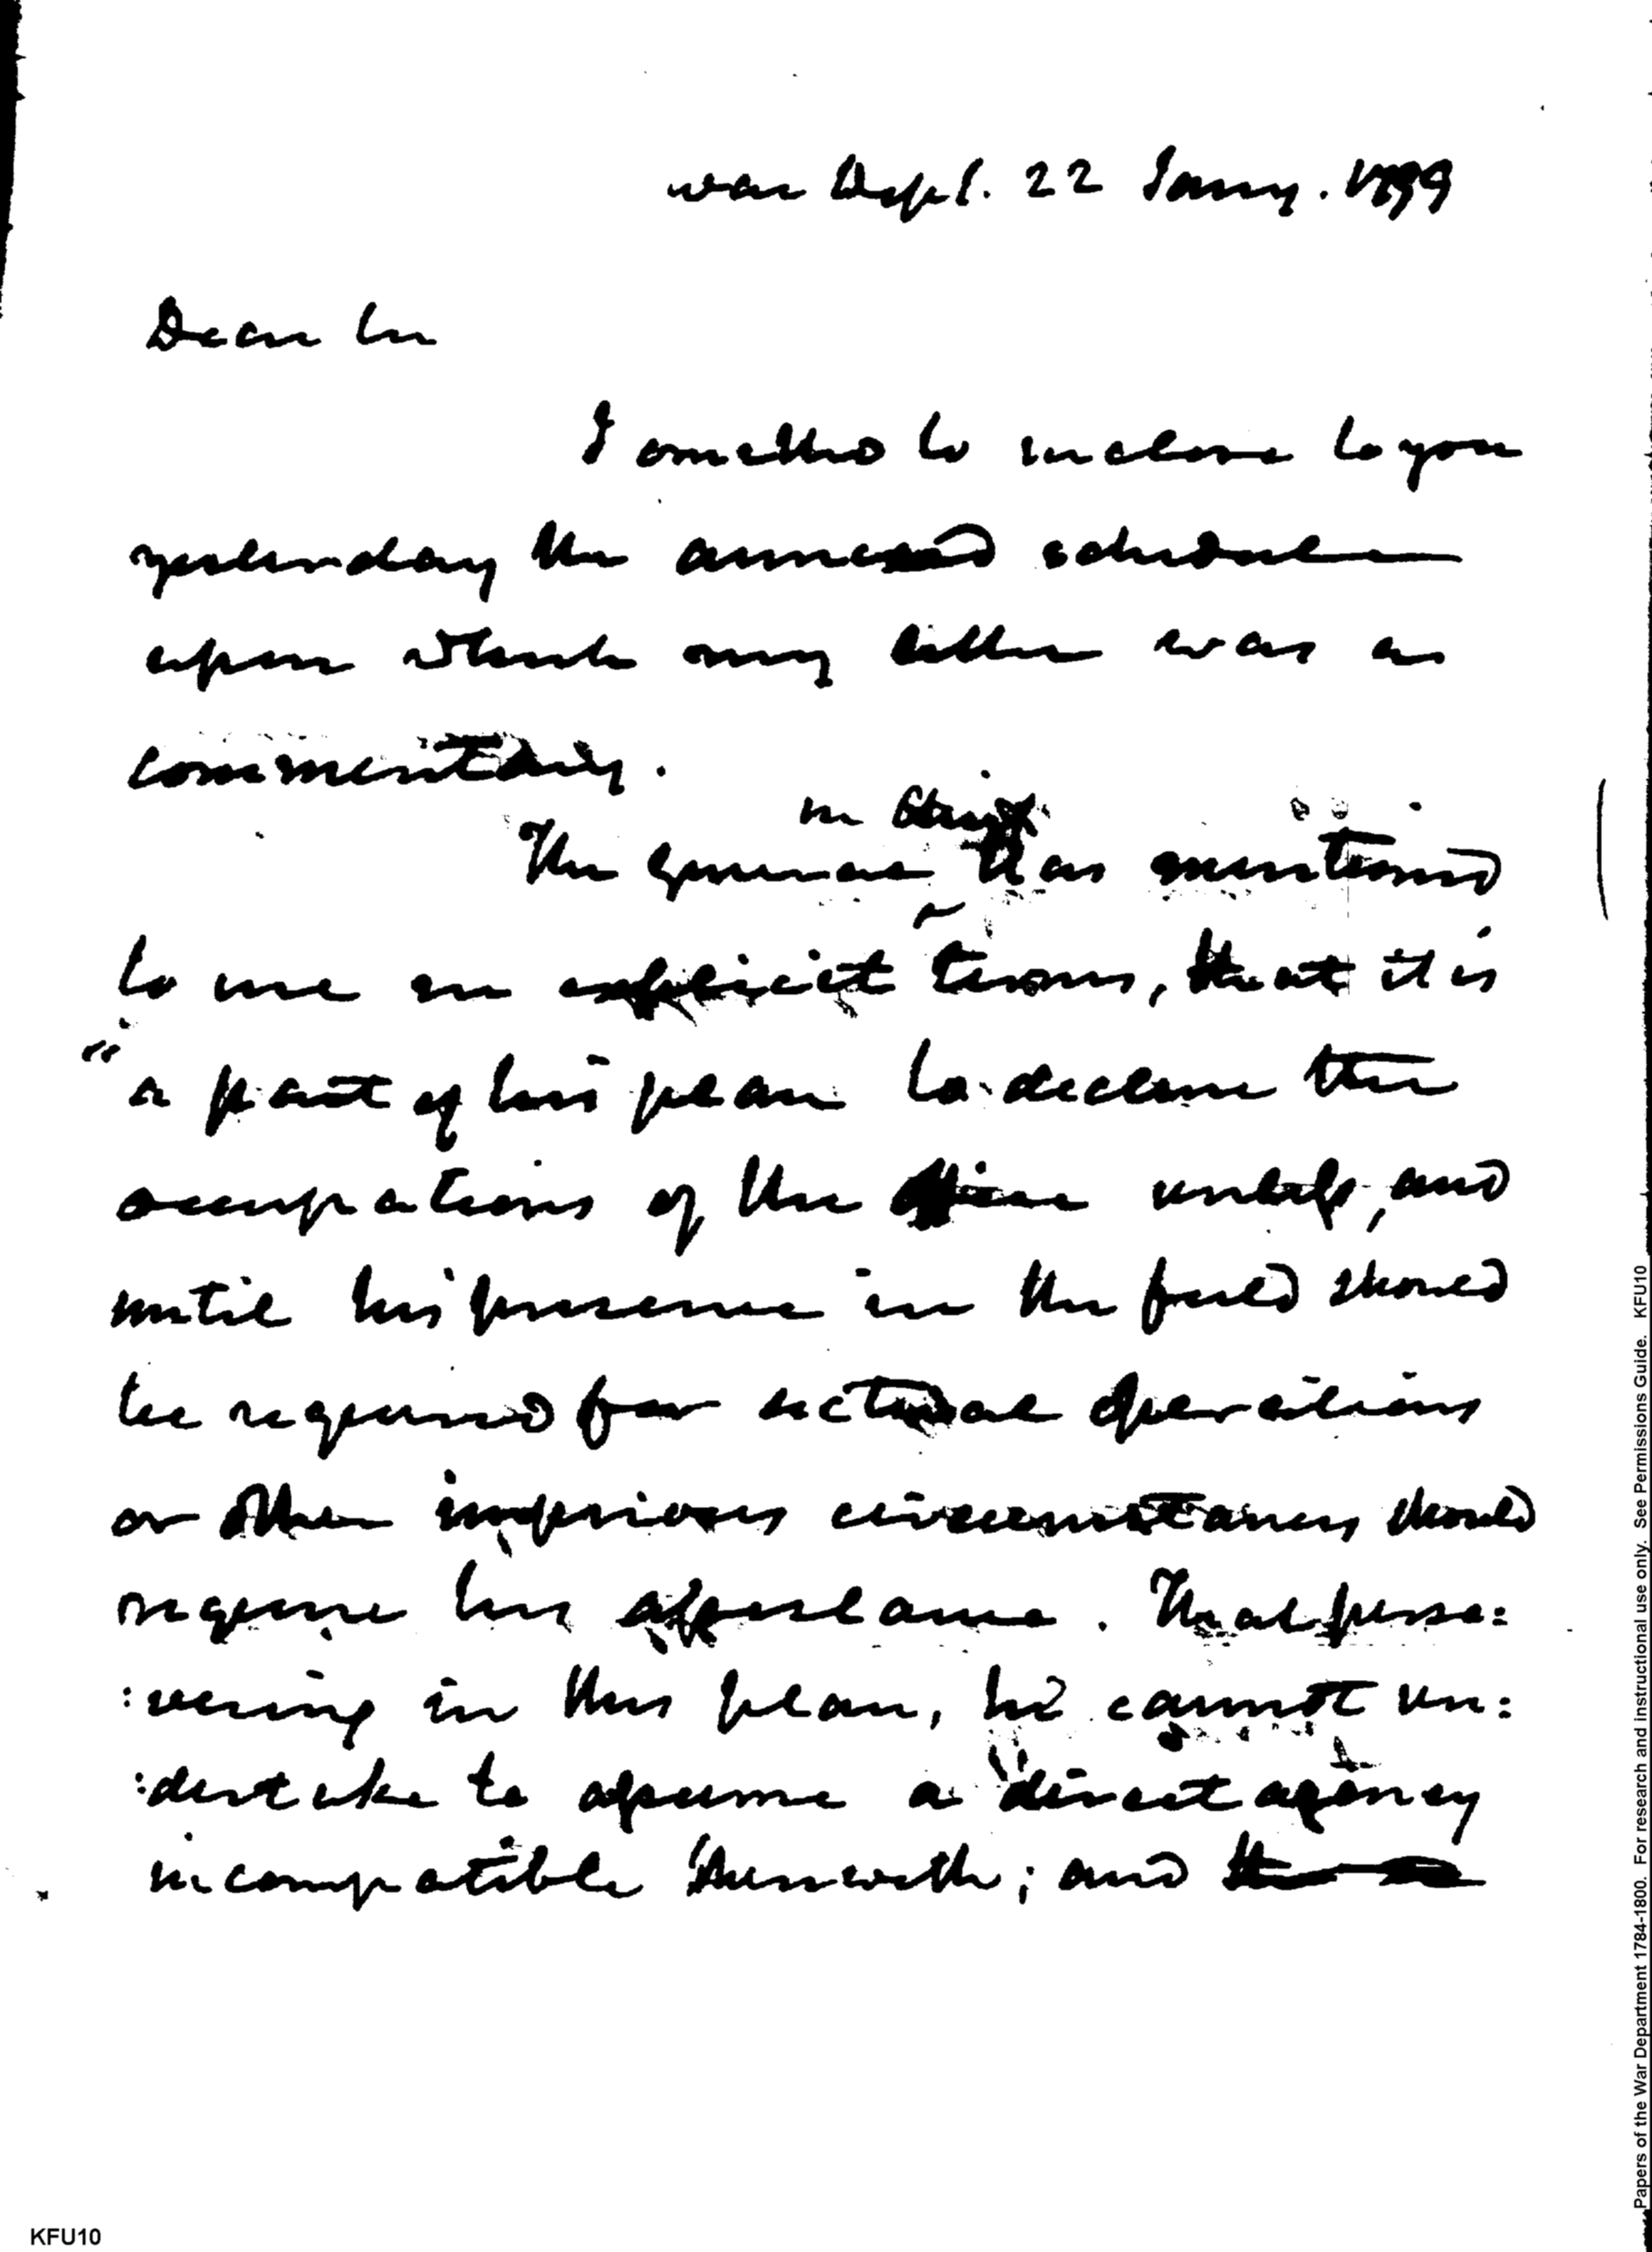 War Dept. 22 Jany. 1799
Dear Sir
I omitted to inclose to you
yesterday the annexed schedule
upon which my letter was a
commentary.
in Chief
The general has mentioned
to me in explicit terms, that it is
" a part of his plan to decline the
occupations of the office unless, and
until his presence in the field should
be required for actual operations
or other imperious circumstances should
require his assistance. That perse:
:vering in this plan, he cannot un:
:dertake to assume a direct agency
incompatible therewith; and
Papers of the War Department 1784-1800. For research and instructional use only. See Permissions Guide. KFU10
KFU10